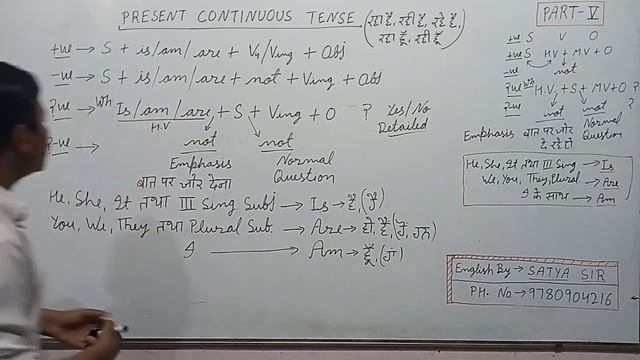 PRESENT CONTINUOUS TENSE (रहा है, रही है, रहे हैं,
रहा हूँ, रही हूँ)
+ve → S + is/am/are + V4/Ving + Obj
-ve → S + is/am/are + not + Ving + Obj
?ve → Wh Is/am/are + S + Ving + O ? Yes/No
H.V Detailed
?-ve → not not
Emphasis Normal
बात पर जोर देना Question
He, She, It तथा III Sing Subj → Is → है, (ਹੈ)
You, We, They तथा Plural Sub. → Are → हो, हैं, (ਹੋ, ਹਨ)
I → Am → हूँ, (ਹਾਂ)
PART-V
+ve S V O
+ve S H.V + M.V + O
-ve not
?ve Wh H.V, + S + M.V + O ?
?-ve not not ?
Emphasis बात पर जोर Normal
दे रहे हो Question
He, She, It तथा III Sing → Is
We, You, They, Plural → Are
I के साथ → Am
English By → SATYA SIR
PH. No. → 9780904216